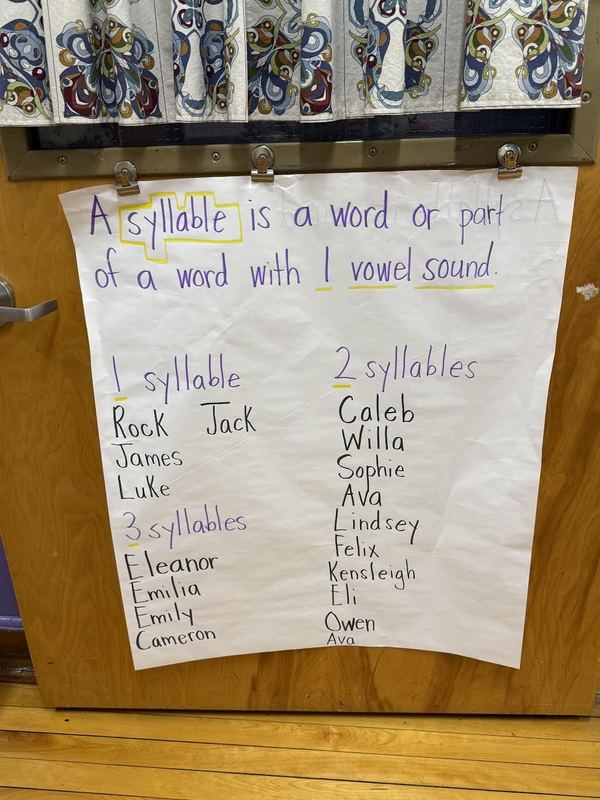 A syllable is a word or part
of a word with 1 vowel sound.
1 syllable
Rock Jack
James
Luke
3 syllables
Eleanor
Emilia
Emily
Cameron
2 syllables
Caleb
Willa
Sophie
Ava
Lindsey
Felix
Kensleigh
Eli
Owen
Ava